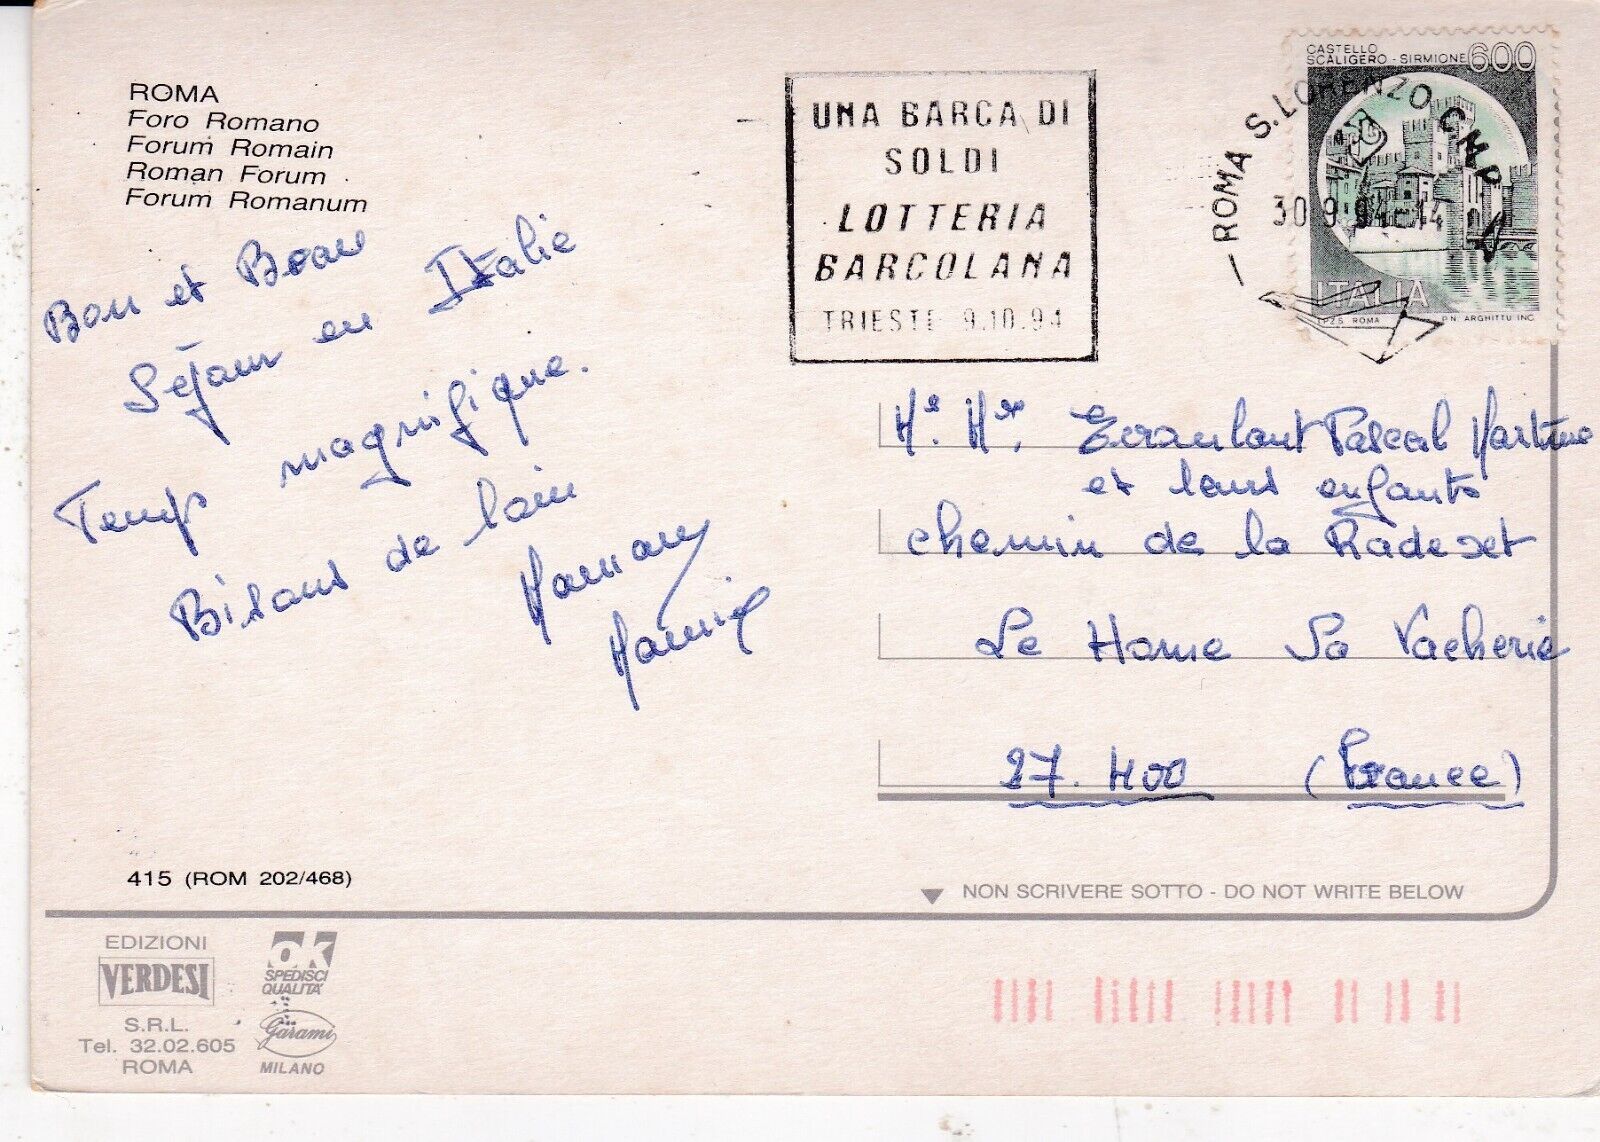 ROMA
Foro Romano
Forum Romain
Roman Forum
Forum Romanum
Bon et Beau
Séjour en Italie
Temps magnifique.
Bisous de loin
UNA BARCA DI
SOLDI
LOTTERIA
BARCOLANA
TRIESTE 9.10.94
ROMA S.LORENZO CMP
30.9.94-14
CASTELLO
SCALIGERO - SIRMIONE 600
ITALIA
I.P.Z.S. ROMA P.N. ARGHITTU INC.
Mr. Me. Pascal Martine
et leurs enfants
chemin de la
Le Home La Vacherie
27.400 (France)
415 (ROM 202/468)
NON SCRIVERE SOTTO - DO NOT WRITE BELOW
EDIZIONI
VERDESI
S.R.L.
Tel. 32.02.605
ROMA
OK
SPEDISCI
QUALITÀ
Garami
MILANO